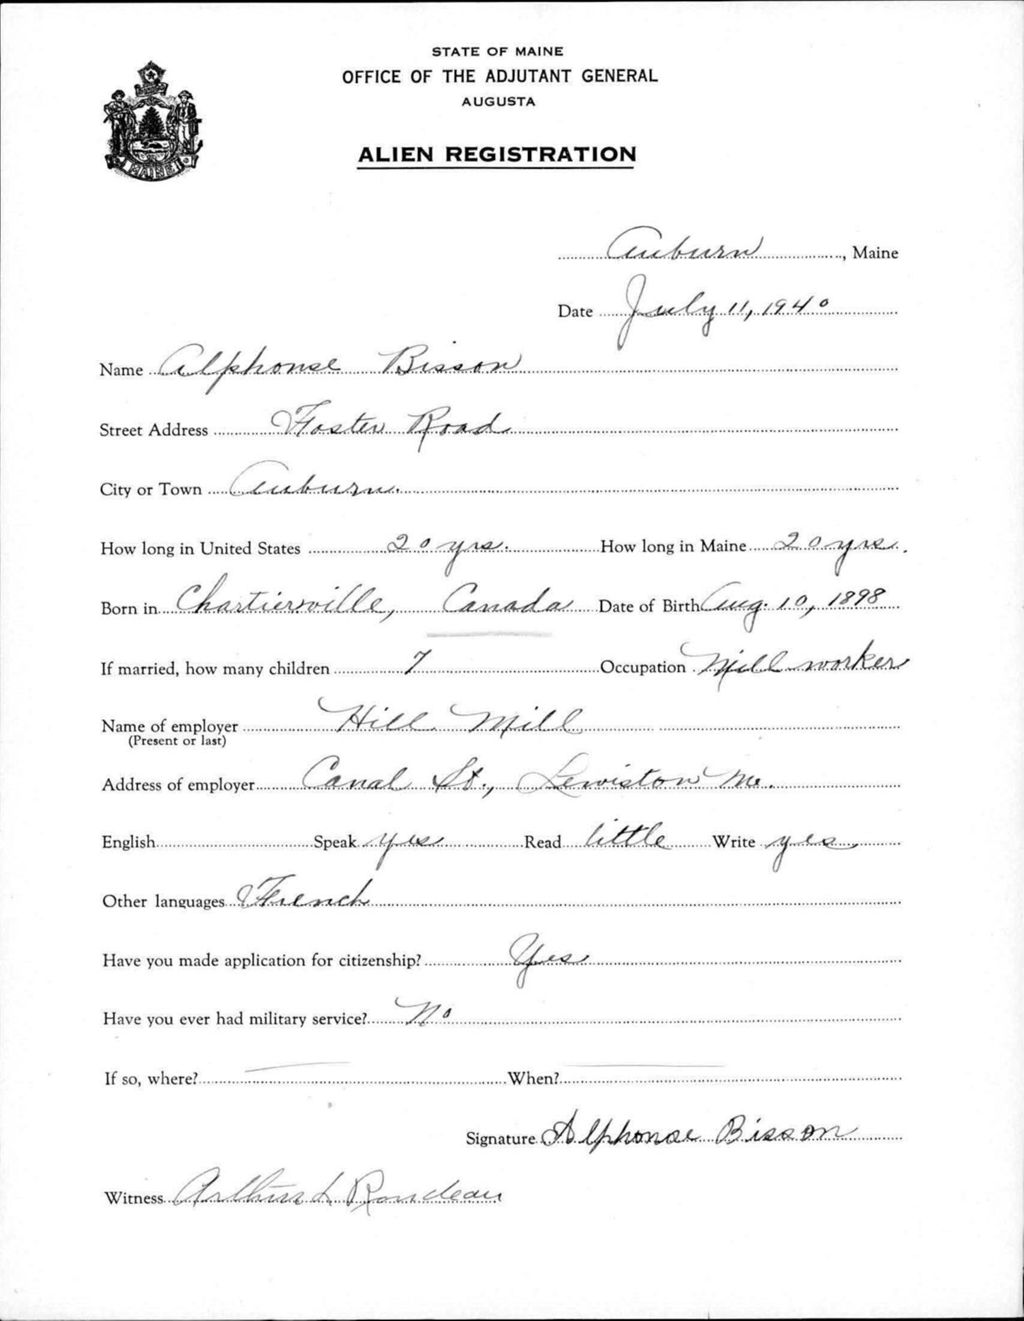 STATE OF MAINE
OFFICE OF THE ADJUTANT GENERAL
AUGUSTA
ALIEN REGISTRATION
MAINE
Auburn, Maine
Date July 11, 1940
Name Alphonse Bisson
Street Address Foster Road
City or Town Auburn.
How long in United States 20 yrs. How long in Maine 20 yrs.
Born in Chartierville, Canada Date of Birth Aug. 10, 1898
If married, how many children 7 Occupation Mill worker
Name of employer Hill Mill
(Present or last)
Address of employer Canal St., Lewiston Me.
English Speak yes Read little Write yes
Other languages French
Have you made application for citizenship? Yes
Have you ever had military service? No
If so, where? When?
Signature Alphonse Bisson
Witness Arthur L Rondeau